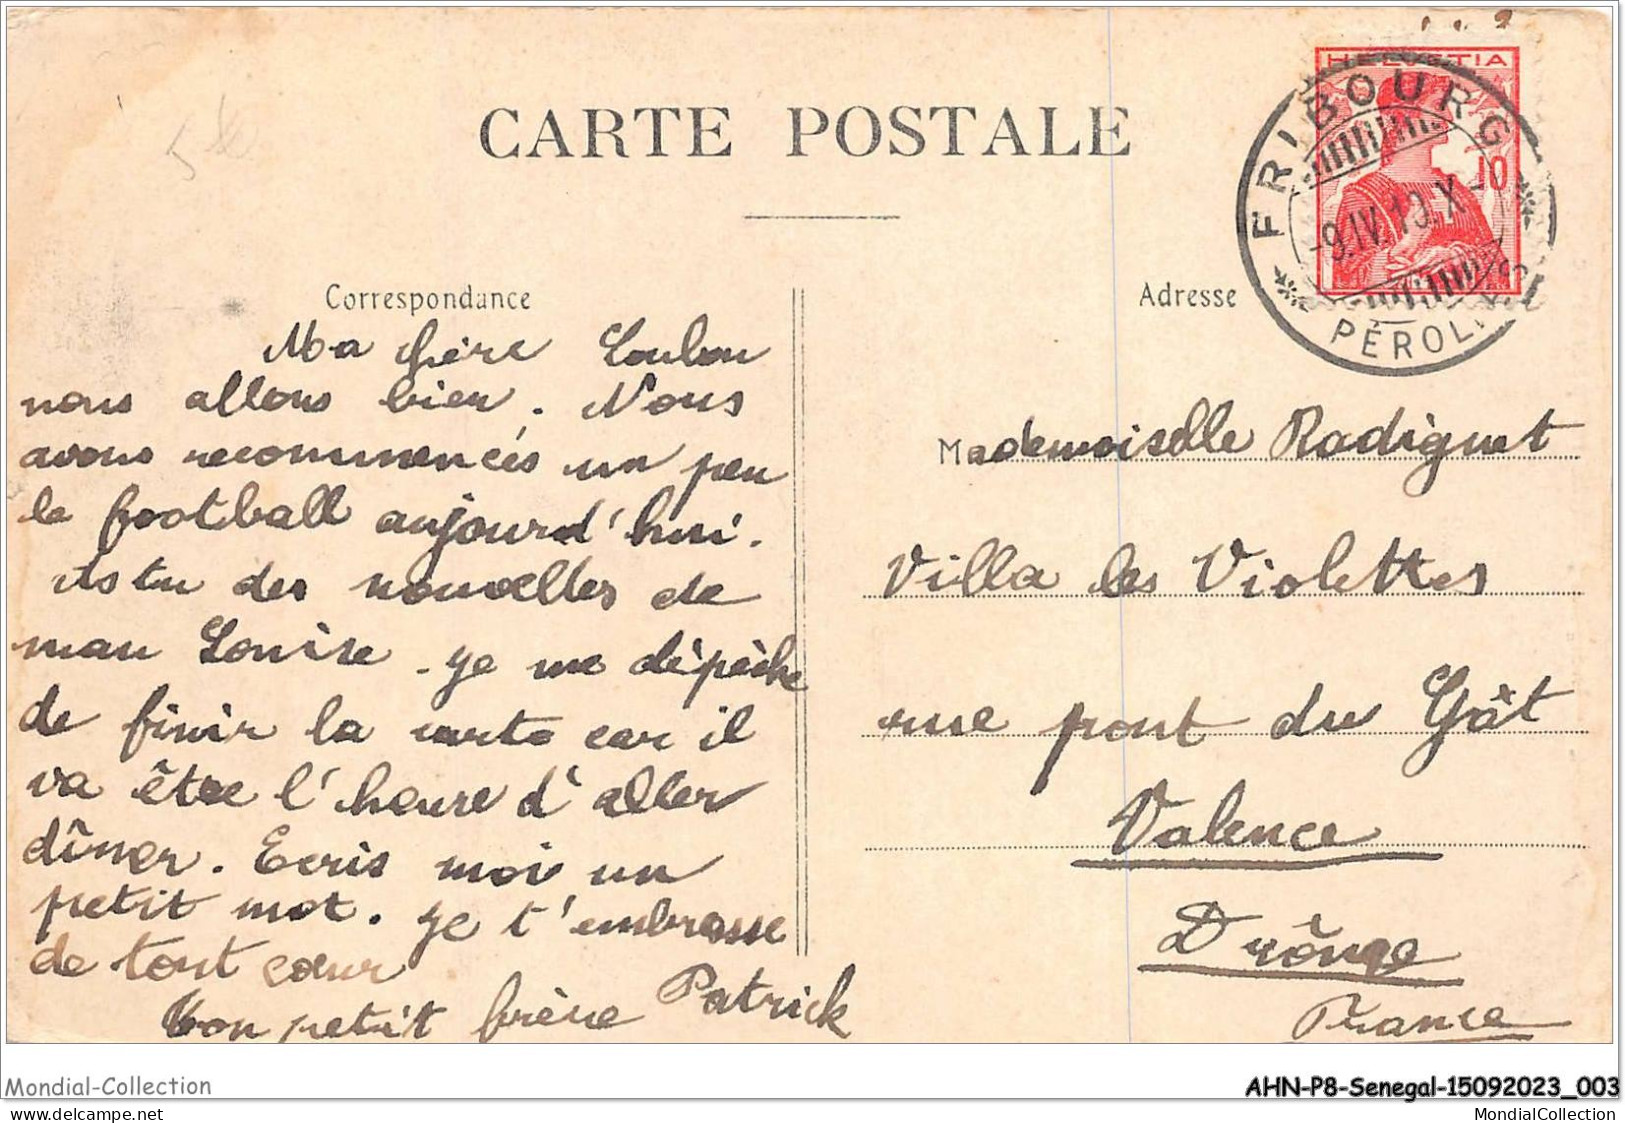 CARTE POSTALE
HELVETIA
10
FRIBOURG
-9.IV.10.X-
PÉROLLES
Correspondance
Adresse
Ma chère Loulou
nous allons bien. Nous
avons recommencés un peu
le football aujourd'hui.
As tu des nouvelles de
man Louise. je me dépèche
de finir la carte car il
va être l'heure d'aller
dîner. Ecris moi un
petit mot. je t'embrasse
de tout cœur
Ton petit frère Patrick
Mademoiselle Radiguet
Villa les Violettes
rue pont du Gât
Valence
Drôme
France
Mondial-Collection
AHN-P8-Senegal-15092023_003
www.delcampe.net
MondialCollection